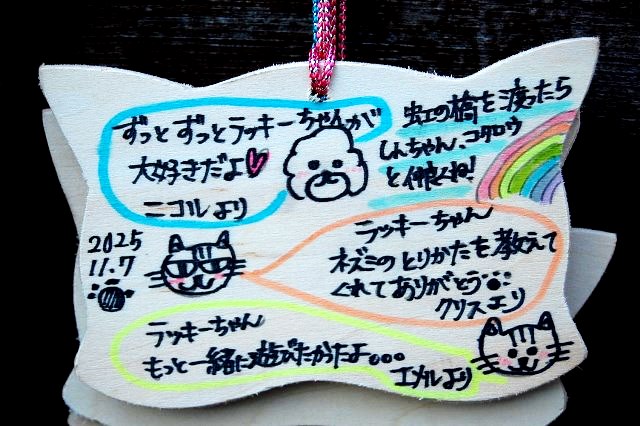 ずっとずっとラッキーちゃんが
大好きだよ
ニコルより
虹の橋を渡ったら
しんちゃん、コタロウ
と仲良くね!
2025
11.7
ラッキーちゃん
ネズミのとりかたを教えて
くれてありがとう
クリスより
ラッキーちゃん
もっと一緒に遊びたかったよ...
エメルより